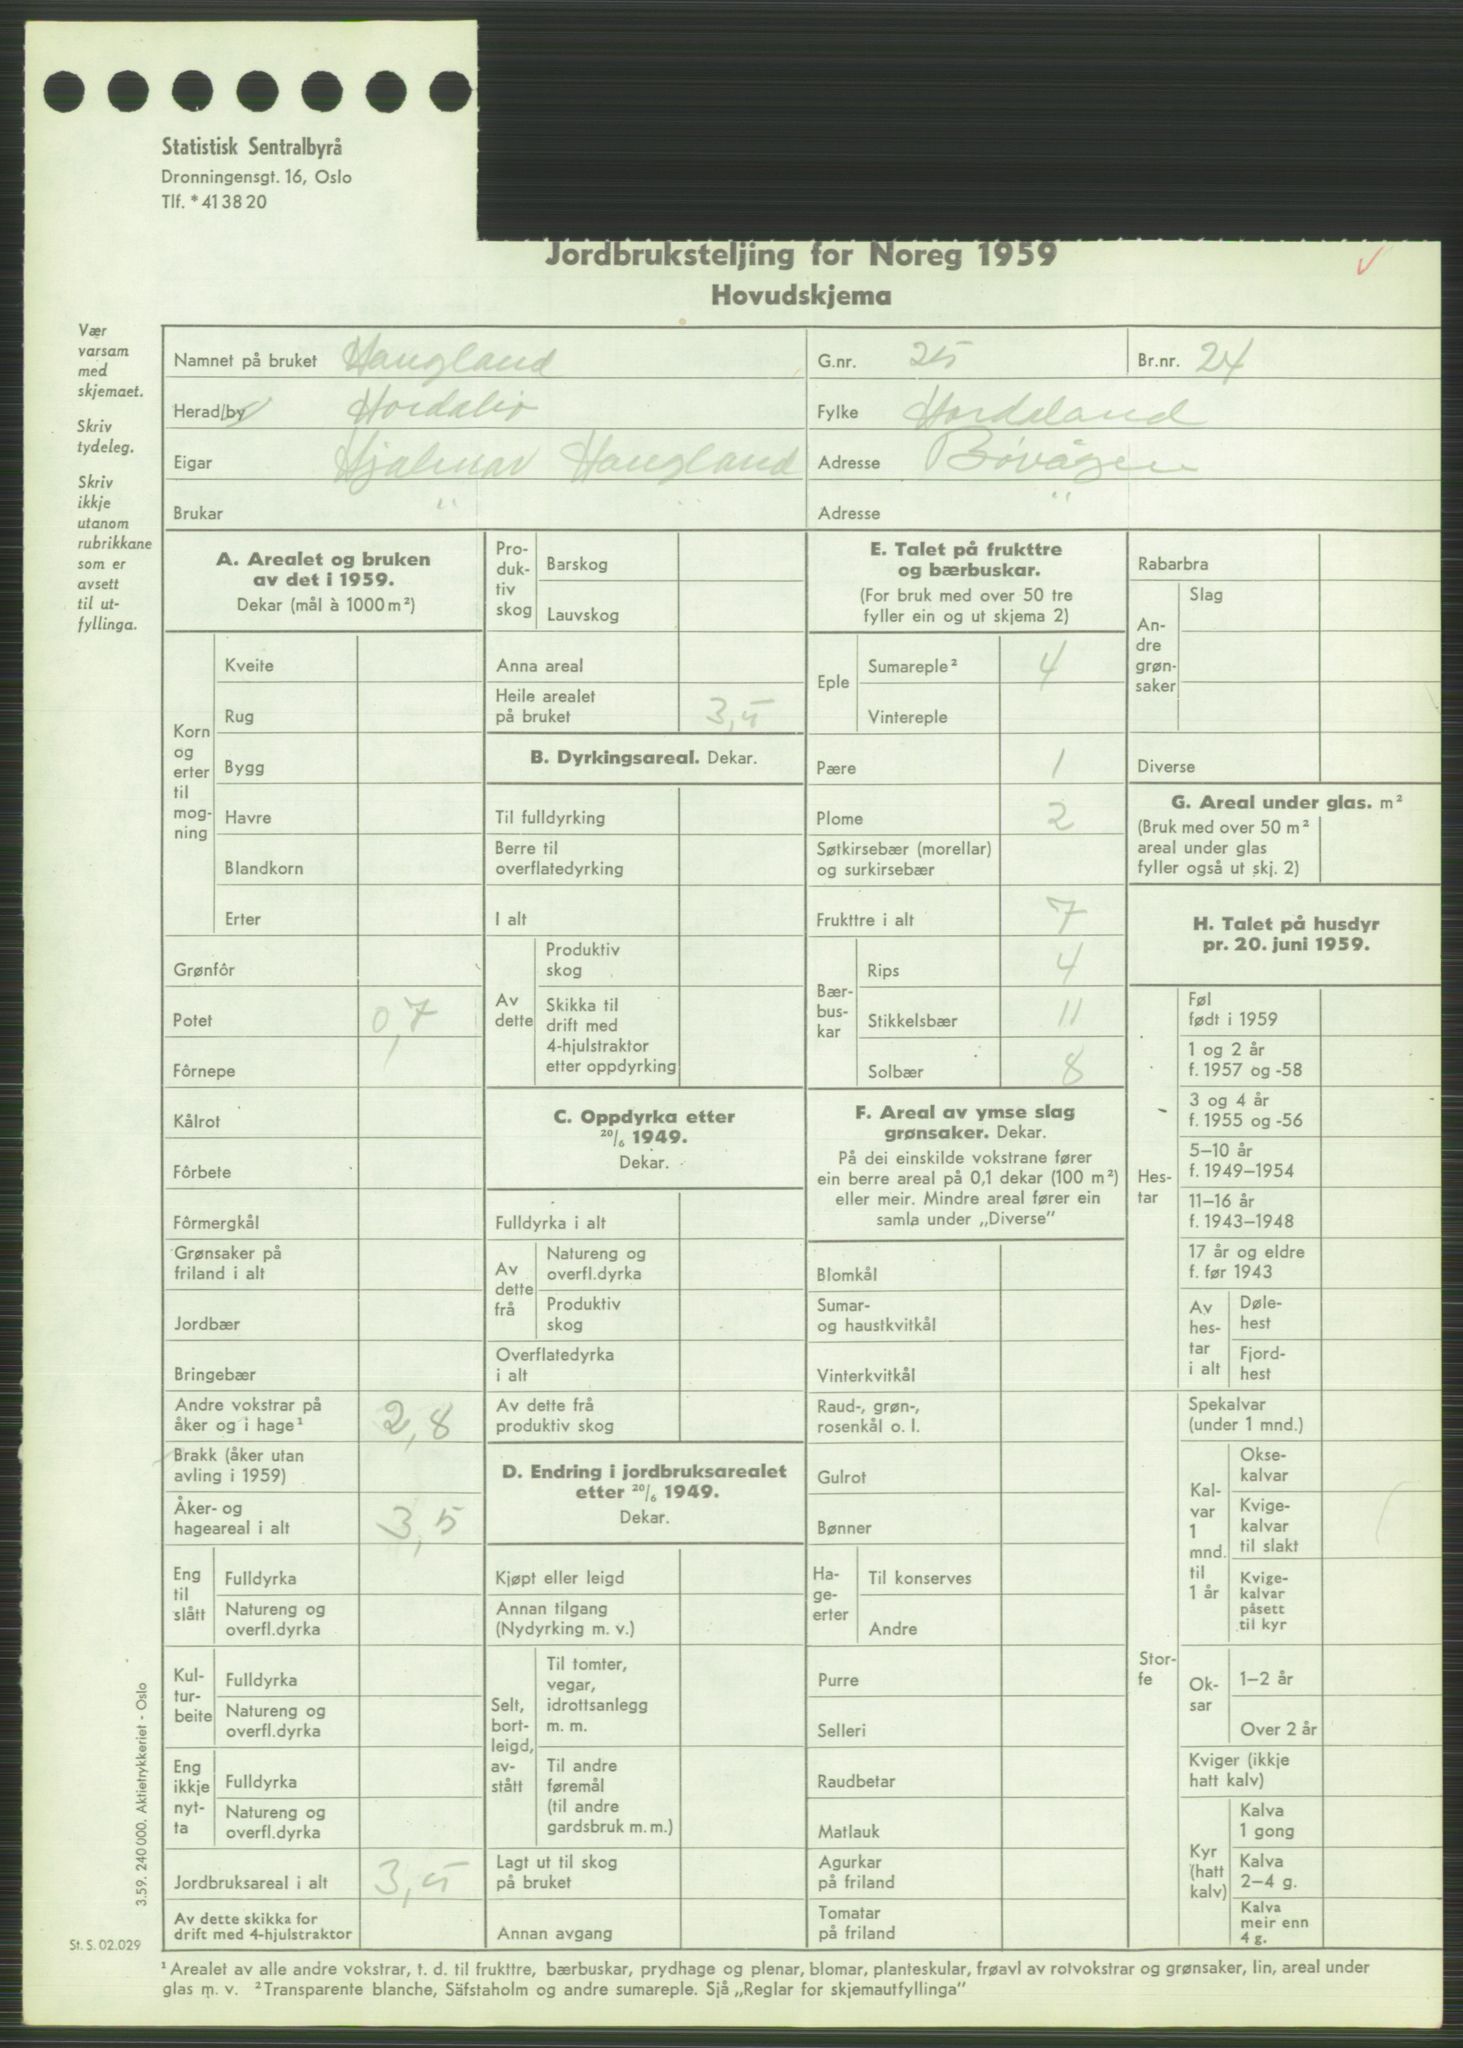 Statistisk Sentralbyrå
Dronningensgt. 16, Oslo
Tlf. * 41 38 20
Jordbruksteljing for Noreg 1959
Hovudskjema
Vær
varsam
med
skjemaet.
Skriv
tydeleg.
Skriv
ikkje
utanom
rubrikkane
som er
avsett
til ut-
fyllinga.
Namnet på bruket Haugland G.nr. 25 Br.nr. 24
Herad/by Hordabø Fylke Hordaland
Eigar Hjalmar Haugland Adresse Bøvågen
Brukar " " Adresse "
A. Arealet og bruken
av det i 1959.
Dekar (mål à 1000 m²)
Korn
og
erter
til
mog-
ning
Kveite
Rug
Bygg
Havre
Blandkorn
Erter
Grønfôr
Potet 0,7
Fôrnepe
Kålrot
Fôrbete
Fôrmergkål
Grønsaker på
friland i alt
Jordbær
Bringebær
Andre vokstrar på
åker og i hage¹ 2,8
Brakk (åker utan
avling i 1959)
Åker- og
hageareal i alt 3,5
Eng
til
slått
Fulldyrka
Natureng og
overfl.dyrka
Kul-
tur-
beite
Fulldyrka
Natureng og
overfl.dyrka
Eng
ikkje
nyt-
ta
Fulldyrka
Natureng og
overfl.dyrka
Jordbruksareal i alt 3,5
Av dette skikka for
drift med 4-hjulstraktor
Pro-
duk-
tiv
skog
Barskog
Lauvskog
Anna areal
Heile arealet
på bruket 3,5
B. Dyrkingsareal. Dekar.
Til fulldyrking
Berre til
overflatedyrking
I alt
Av
dette
Produktiv
skog
Skikka til
drift med
4-hjulstraktor
etter oppdyrking
C. Oppdyrka etter
20/6 1949.
Dekar.
Fulldyrka i alt
Av
dette
frå
Natureng og
overfl.dyrka
Produktiv
skog
Overflatedyrka
i alt
Av dette frå
produktiv skog
D. Endring i jordbruksarealet
etter 20/6 1949.
Dekar.
Kjøpt eller leigd
Annan tilgang
(Nydyrking m. v.)
Selt,
bort-
leigd,
av-
stått
Til tomter,
vegar,
idrottsanlegg
m. m.
Til andre
føremål
(til andre
gardsbruk m. m.)
Lagt ut til skog
på bruket
Annan avgang
E. Talet på frukttre
og bærbuskar.
(For bruk med over 50 tre
fyller ein og ut skjema 2)
Eple
Sumareple² 4
Vintereple
Pære 1
Plome 2
Søtkirsebær (morellar)
og surkirsebær
Frukttre i alt 7
Bær-
bus-
kar
Rips 4
Stikkelsbær 11
Solbær 8
F. Areal av ymse slag
grønsaker. Dekar.
På dei einskilde vokstrane fører
ein berre areal på 0,1 dekar (100 m²)
eller meir. Mindre areal fører ein
samla under „Diverse”
Blomkål
Sumar-
og haustkvitkål
Vinterkvitkål
Raud-, grøn-,
rosenkål o. l.
Gulrot
Bønner
Ha-
ge-
erter
Til konserves
Andre
Purre
Selleri
Raudbetar
Matlauk
Agurkar
på friland
Tomatar
på friland
Rabarbra
An-
dre
grøn-
saker
Slag
Diverse
G. Areal under glas. m²
(Bruk med over 50 m²
areal under glas
fyller også ut skj. 2)
H. Talet på husdyr
pr. 20. juni 1959.
Hes-
tar
Føl
født i 1959
1 og 2 år
f. 1957 og -58
3 og 4 år
f. 1955 og -56
5–10 år
f. 1949–1954
11–16 år
f. 1943–1948
17 år og eldre
f. før 1943
Av
hes-
tar
i alt
Døle-
hest
Fjord-
hest
Stor-
fe
Spekalvar
(under 1 mnd.)
Kal-
var
1
mnd.
til
1 år
Okse-
kalvar
Kvige-
kalvar
til slakt
Kvige-
kalvar
påsett
til kyr
Ok-
sar
1–2 år
Over 2 år
Kviger (ikkje
hatt kalv)
Kyr
(hatt
kalv)
Kalva
1 gong
Kalva
2–4 g.
Kalva
meir enn
4 g.
3.59. 240 000. Aktietrykkeriet - Oslo
St. S. 02.029
¹ Arealet av alle andre vokstrar, t. d. til frukttre, bærbuskar, prydhage og plenar, blomar, planteskular, frøavl av rotvokstrar og grønsaker, lin, areal under
glas m. v. ² Transparente blanche, Säfstaholm og andre sumareple. Sjå „Reglar for skjemautfyllinga”